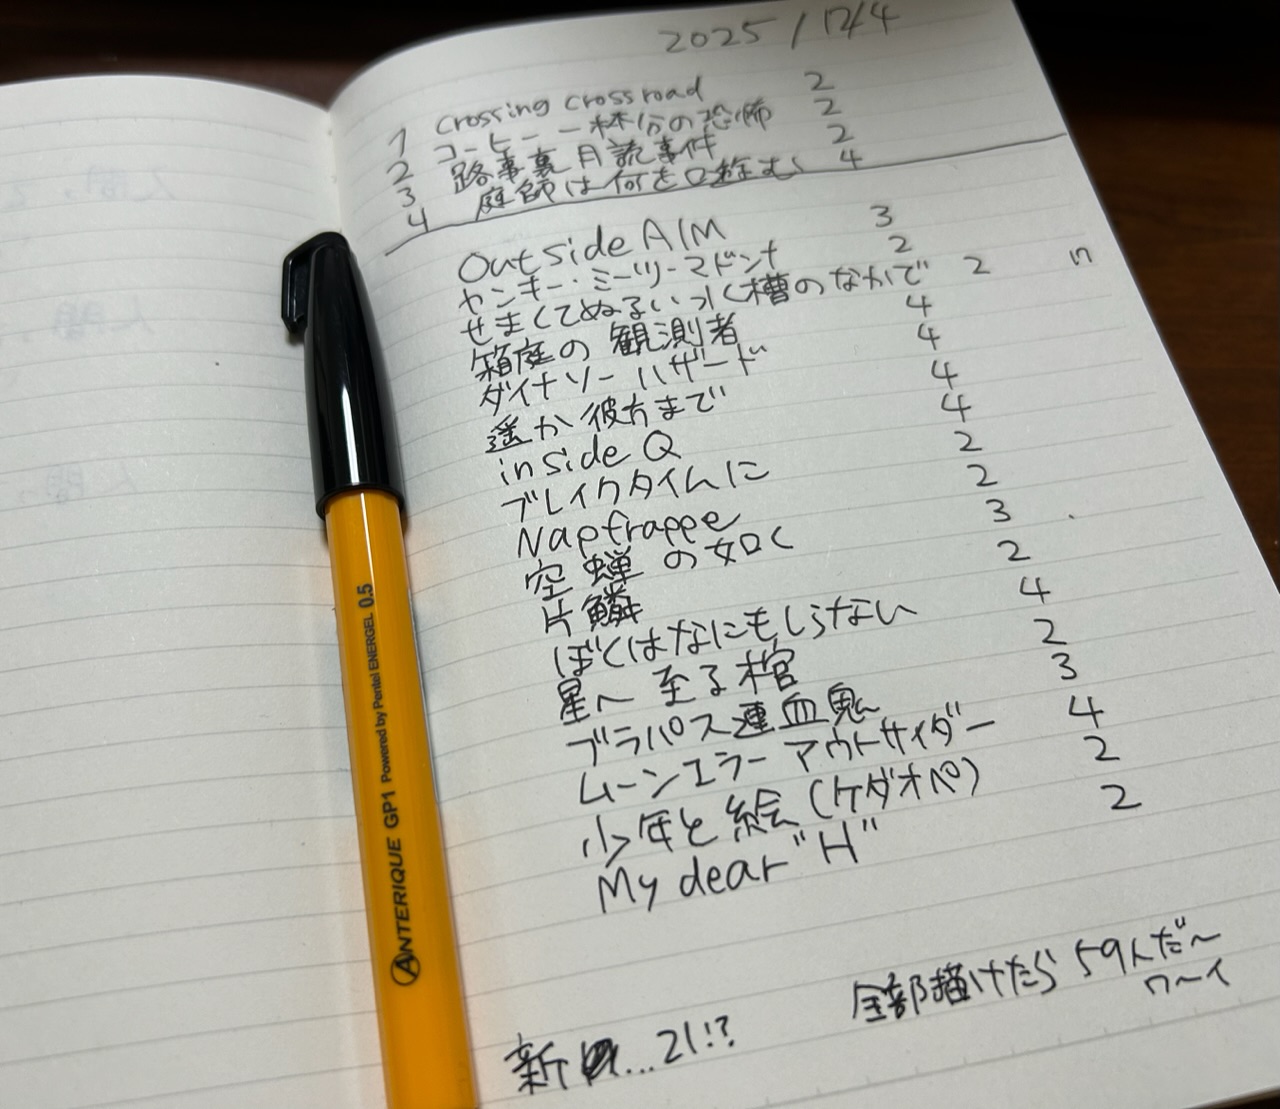 2025/12/4
1 Crossing crossroad 2
2 コーヒー一杯分の恐怖 2
3 路事裏月読事件 2
4 庭師は何を口遊む 4
Outside AIM 3
ヤンキー・ミーツ・マドンナ 2
せまくてぬるい水槽のなかで 2
箱庭の観測者 4
ダイナソーハザード 4
遥か彼方まで 4
inside Q 4
ブレイクタイムに 2
Napfrappe 2
空蝉の如く 3
片鱗 2
ぼくはなにもしらない 4
星へ至る棺 2
ブラパス連血鬼 3
ムーンエラーアウトサイダー 4
少年と絵(ケダオペ) 2
My dear "H" 2
全部描けたら59人だ〜
ワ〜イ
新...21!?
ANTERIQUE GP1 Powered by Pentel ENERGEL 0.5